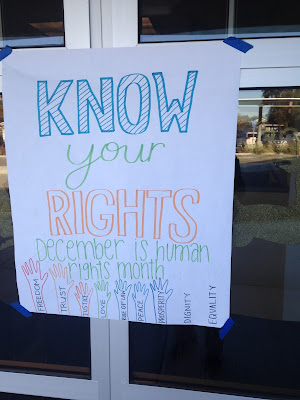 KNOW
your
RIGHTS
December is human
rights month
FREEDOM
TRUST
JUSTICE
LOVE
RULE OF LAW
PEACE
PROSPERITY
DIGNITY
EQUALITY